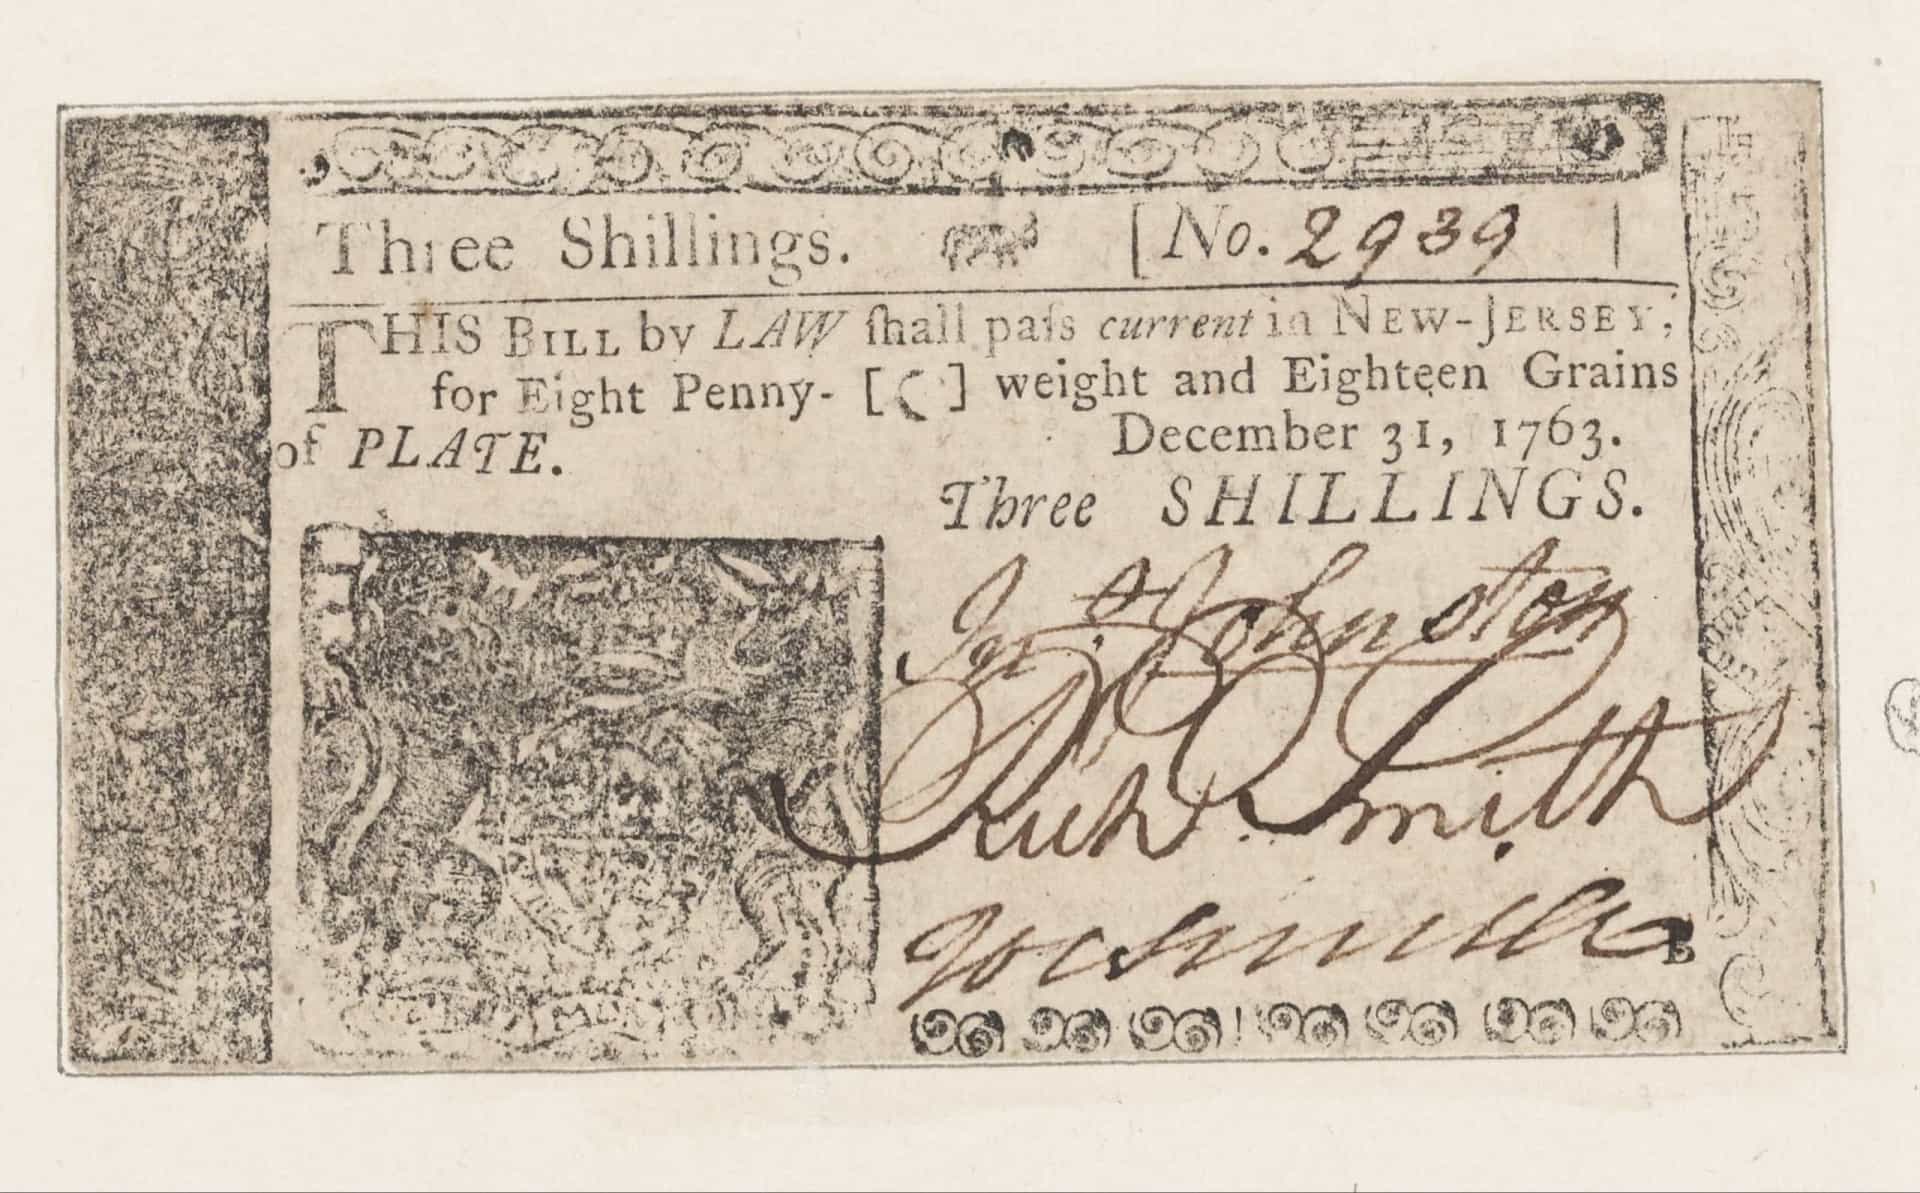 Three Shillings. [No. 2939 ]
THIS BILL by LAW ſhall paſs current in NEW-JERSEY,
for Eight Penny- [ ] weight and Eighteen Grains
of PLATE.
December 31, 1763.
Three SHILLINGS.
Jn. Johnston
Richd. Smith
B